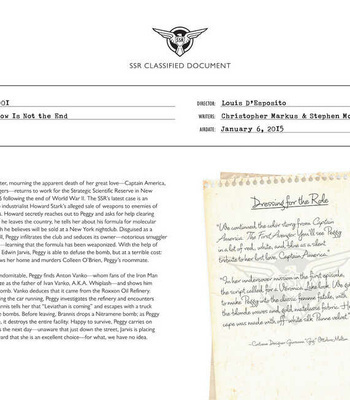 SSR
SSR CLASSIFIED DOCUMENT
001
ow Is Not the End
DIRECTOR: Louis D'Esposito
WRITERS: Christopher Markus & Stephen Mc
AIRDATE: January 6, 2015
ter, mourning the apparent death of her great love—Captain America,
gers—returns to work for the Strategic Scientific Reserve in New
6 following the end of World War II. The SSR's latest case is an
industrialist Howard Stark's alleged sale of weapons to enemies of
s. Howard secretly reaches out to Peggy and asks for help clearing
he leaves the country, he tells her about his formula for molecular
h he believes will be sold at a New York nightclub. Disguised as a
ll, Peggy infiltrates the club and seduces its owner—notorious smuggler
—learning that the formula has been weaponized. With the help of
Edwin Jarvis, Peggy is able to defuse the bomb, but at a terrible cost:
ws her home and murders Colleen O'Brien, Peggy's roommate.
ndomitable, Peggy finds Anton Vanko—whom fans of the Iron Man
ze as the father of Ivan Vanko, A.K.A. Whiplash—and shows him
omb. Vanko deduces that it came from the Roxxon Oil Refinery.
ing the car running, Peggy investigates the refinery and encounters
nnis, who tells them that "Leviathan is coming" and escapes with a truck
e bombs. Before leaving, Brannis drops a Nitramene bomb; as Peggy
, it destroys the entire facility. Happy to survive, Peggy carries on
s the next day—unaware that just down the street, Jarvis is placing
ard that she is an excellent choice—for what, we have no idea.
Dressing for the Role
"We continued the color story from Captain
America: The First Avenger. You'll see Peggy
in a lot of red, white, and blue as a silent
tribute to her lost love, Captain America."
"In her undercover mission in the first episode,
the script called for a Veronica Lake look. We
to make Peggy into the classic femme fatale, with
the blonde waves and gold metallic fabric.
cape was made with off-white silk Panne velvet."
—Costume Designer Giovanna